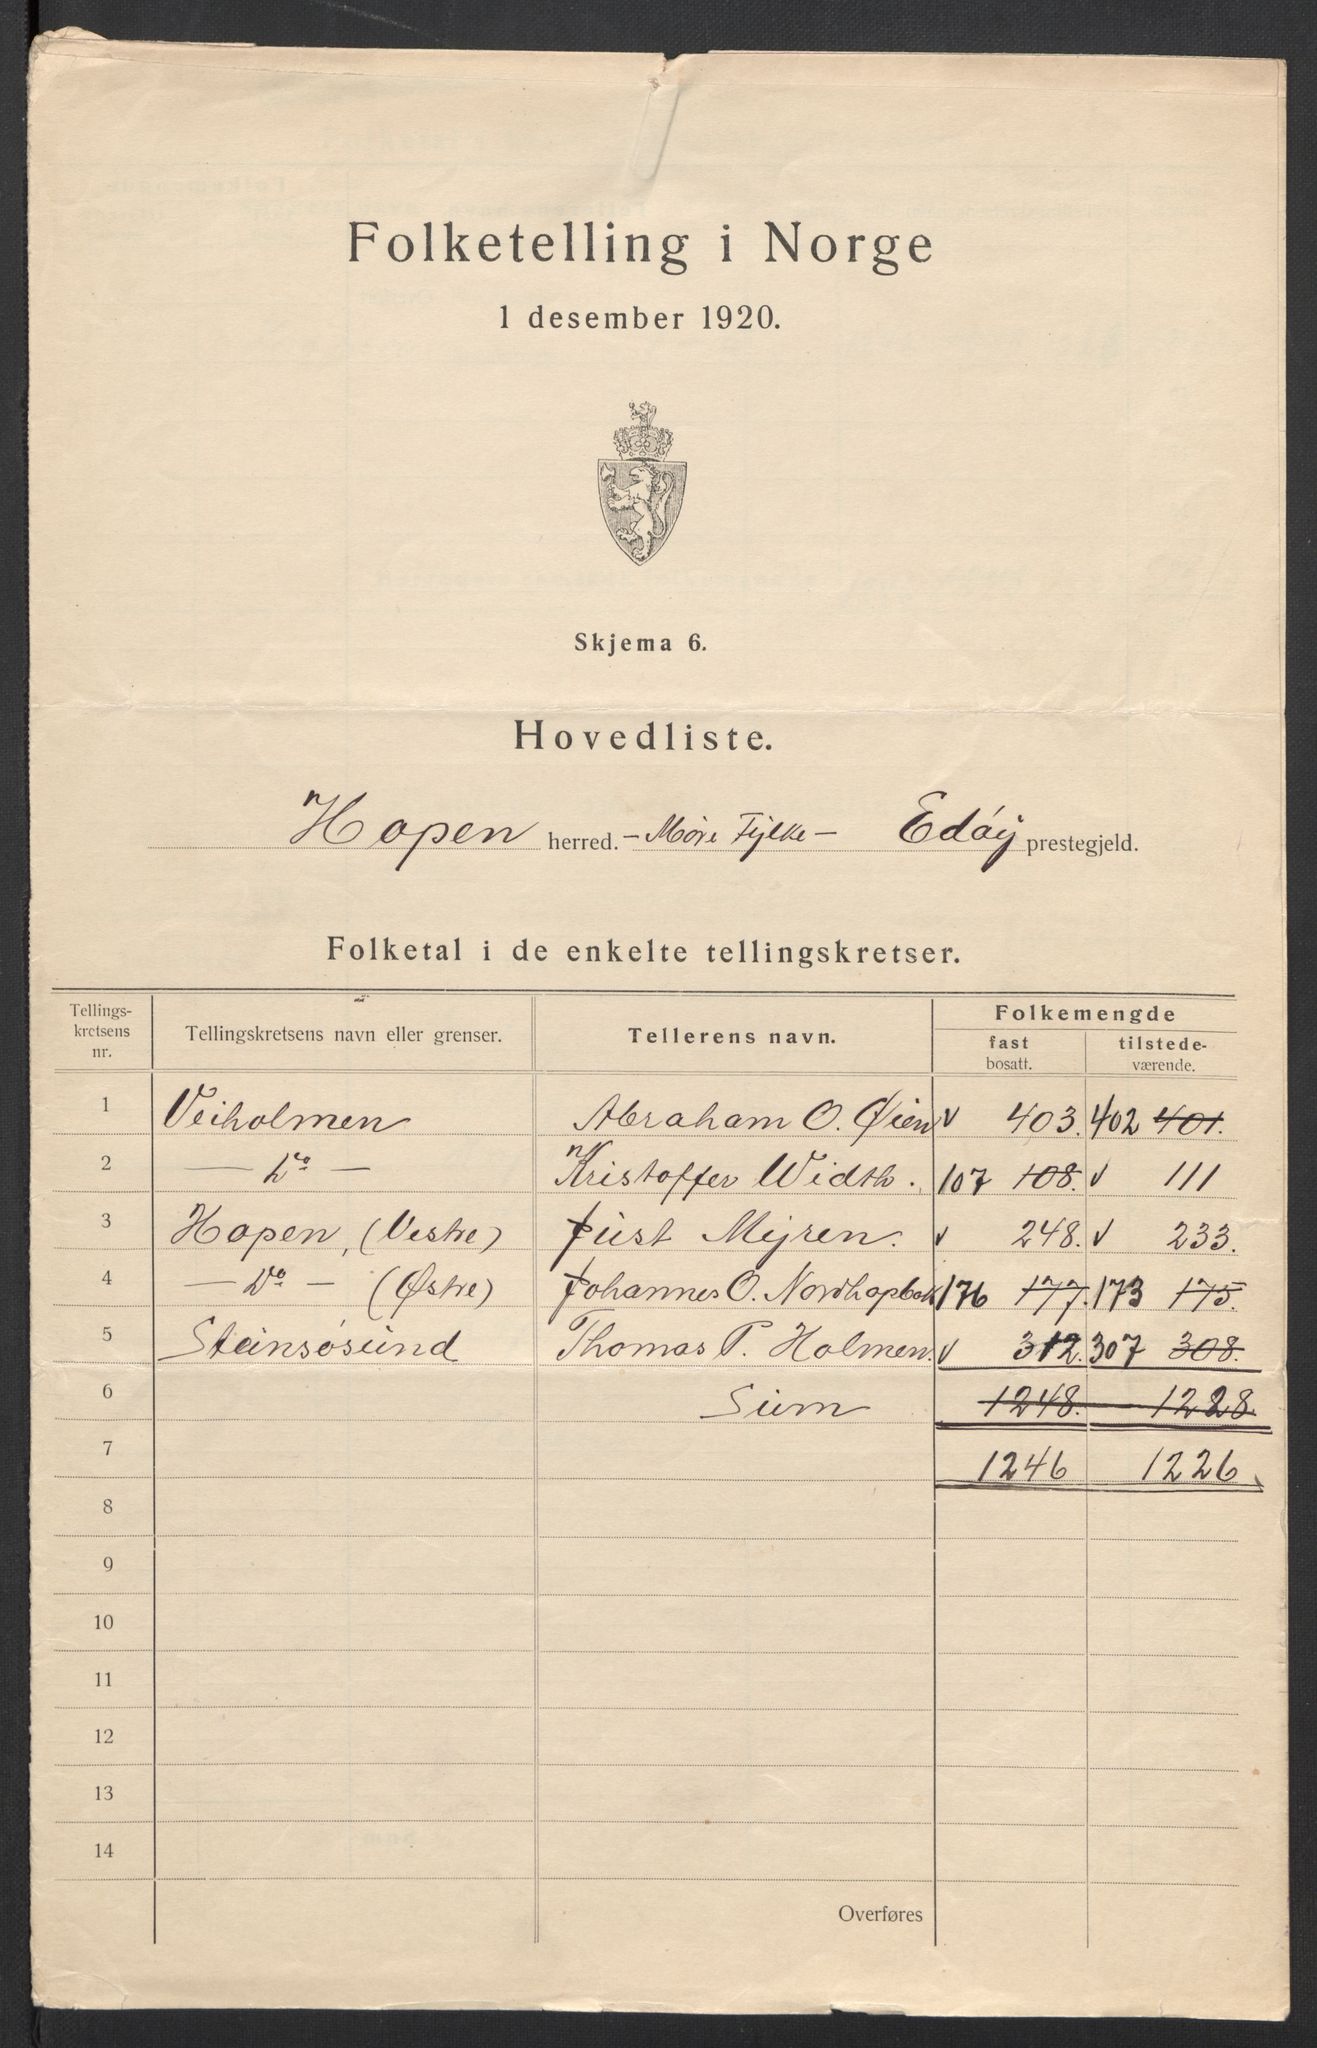 Folketelling i Norge
1 desember 1920.
Skjema 6.
Hovedliste.
Hopen herred. – Møre Fylke – Edöy prestegjeld.
Folketal i de enkelte tellingskretser.
Tellings-kretsens nr. Tellingskretsens navn eller grenser. Tellerens navn. Folkemengde
fast bosatt. tilstede-værende.
1 Veiholmen Abraham O. Øien √ 403. 402 401.
2 — Do — Kristoffer Width. 107 108. √ 111
3 Hopen, (Vestre) Just Myren. √ 248. √ 233.
4 — Do — (Østre) Johannes O. Nordhopbak 176 177. 173 175.
5 Steinsösund Thomas P. Holmen. √ 312. 307 308.
6 Sum 1248. 1228.
7 1246 1226
8
9
10
11
12
13
14
Overføres